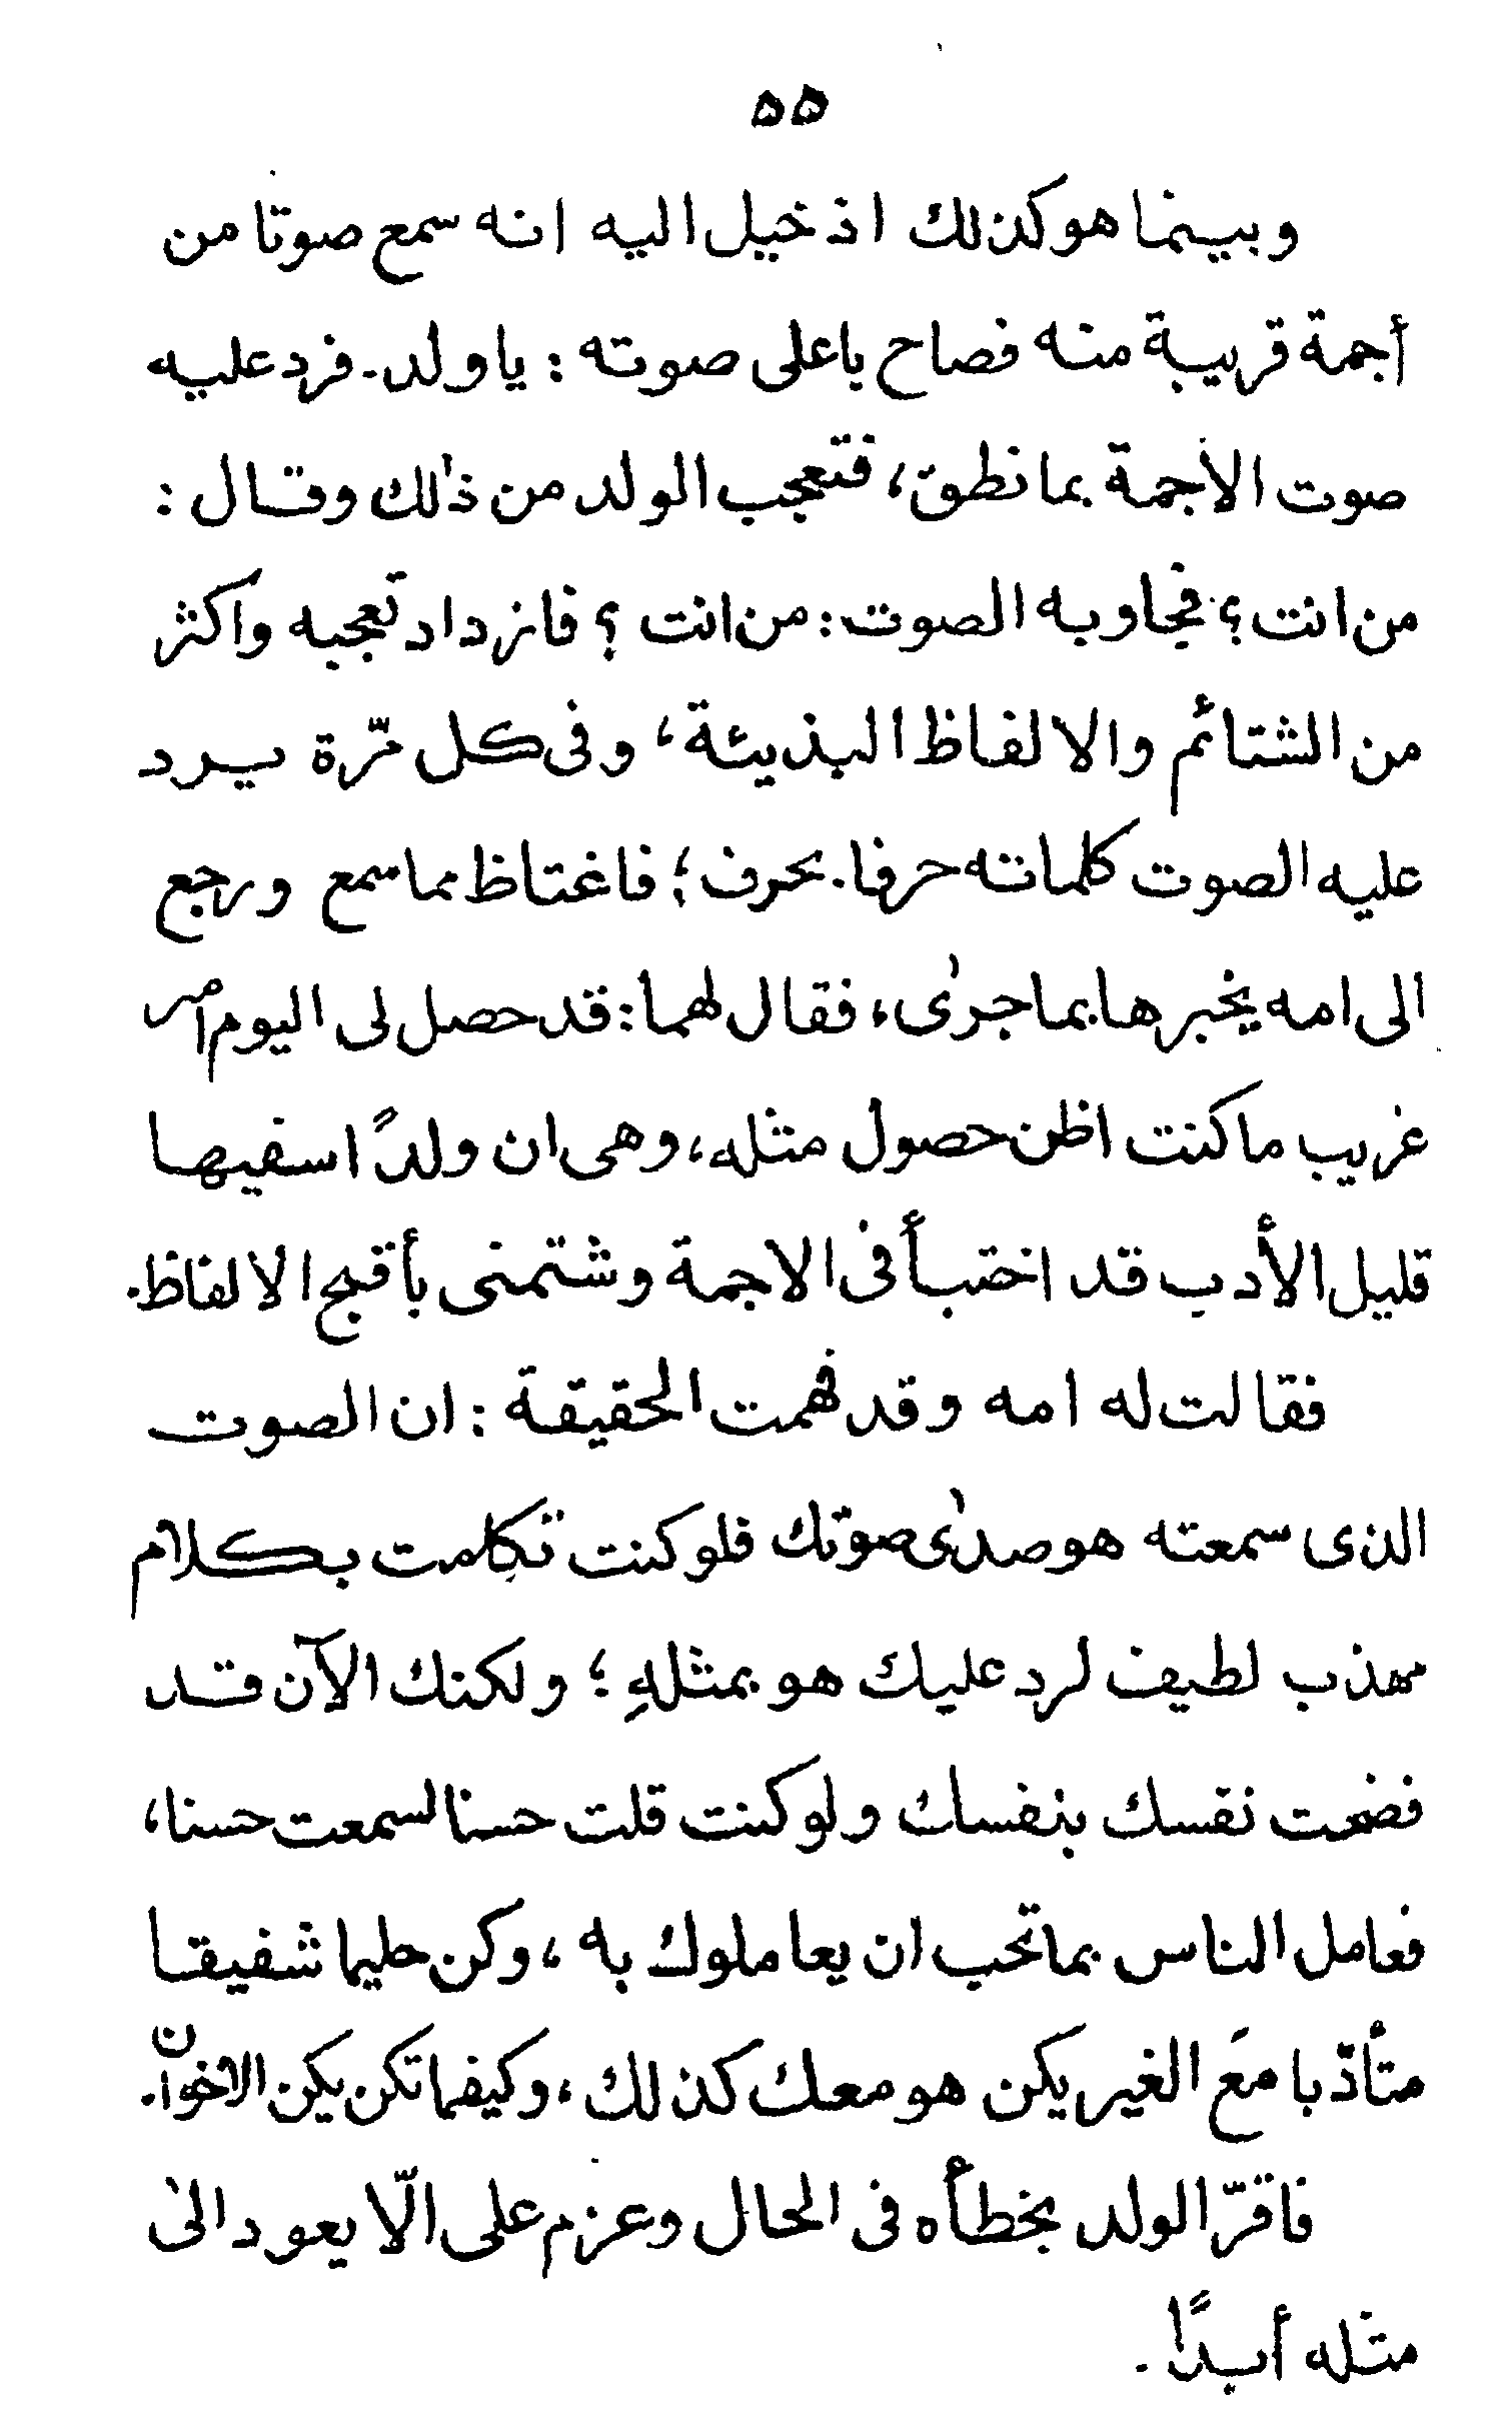 ٥٥
وبينما هو كذلك اذ خيل اليه انه سمع صوتا من
أجمة قريبة منه فصاح باعلى صوته : يا ولد. فرد عليه
صوت الاجمة بما نطق، فتعجب الولد من ذٰلك وقال :
من انت؟ فجاوبه الصوت: من انت ؟ فازداد تعجبه واكثر
من الشتائم والالفاظ البذيئة، وفى كل مّرة يرد
عليه الصوت كلماته حرفا بحرف؛ فاغتاظ مما سمع ورجع
الى امه يخبرها بما جرىٰ، فقال لهما: قد حصل لى اليوم امر
غريب ما كنت اظن حصول مثله، وهى ان ولدًا سفيها
قليل الأدب قد اختبأ فى الاجمة وشتمنى بأقبح الالفاظ.
فقالت له امه وقد فهمت الحقيقة : ان الصوت
الذى سمعته هو صدىٰ صوتك فلو كنت تكلمت بكلام
مهذب لطيف لرد عليك هو بمثلهِ ؛ ولكنك الآن قد
فضحت نقسك بنفسك ولو كنت قلت حسنا لسمعت حسنا،
فعامل الناس بما تحب ان يعاملوك به ، وكن حليما شفيقا
متأدّبا مَع الغير يكن هو معك كذلك ، وكيفما تكن يكن الاخوان.
فاقرّ الولد بخطأه فى الحال وعزم على الّا يعود الىٰ
مثله أبدًا .